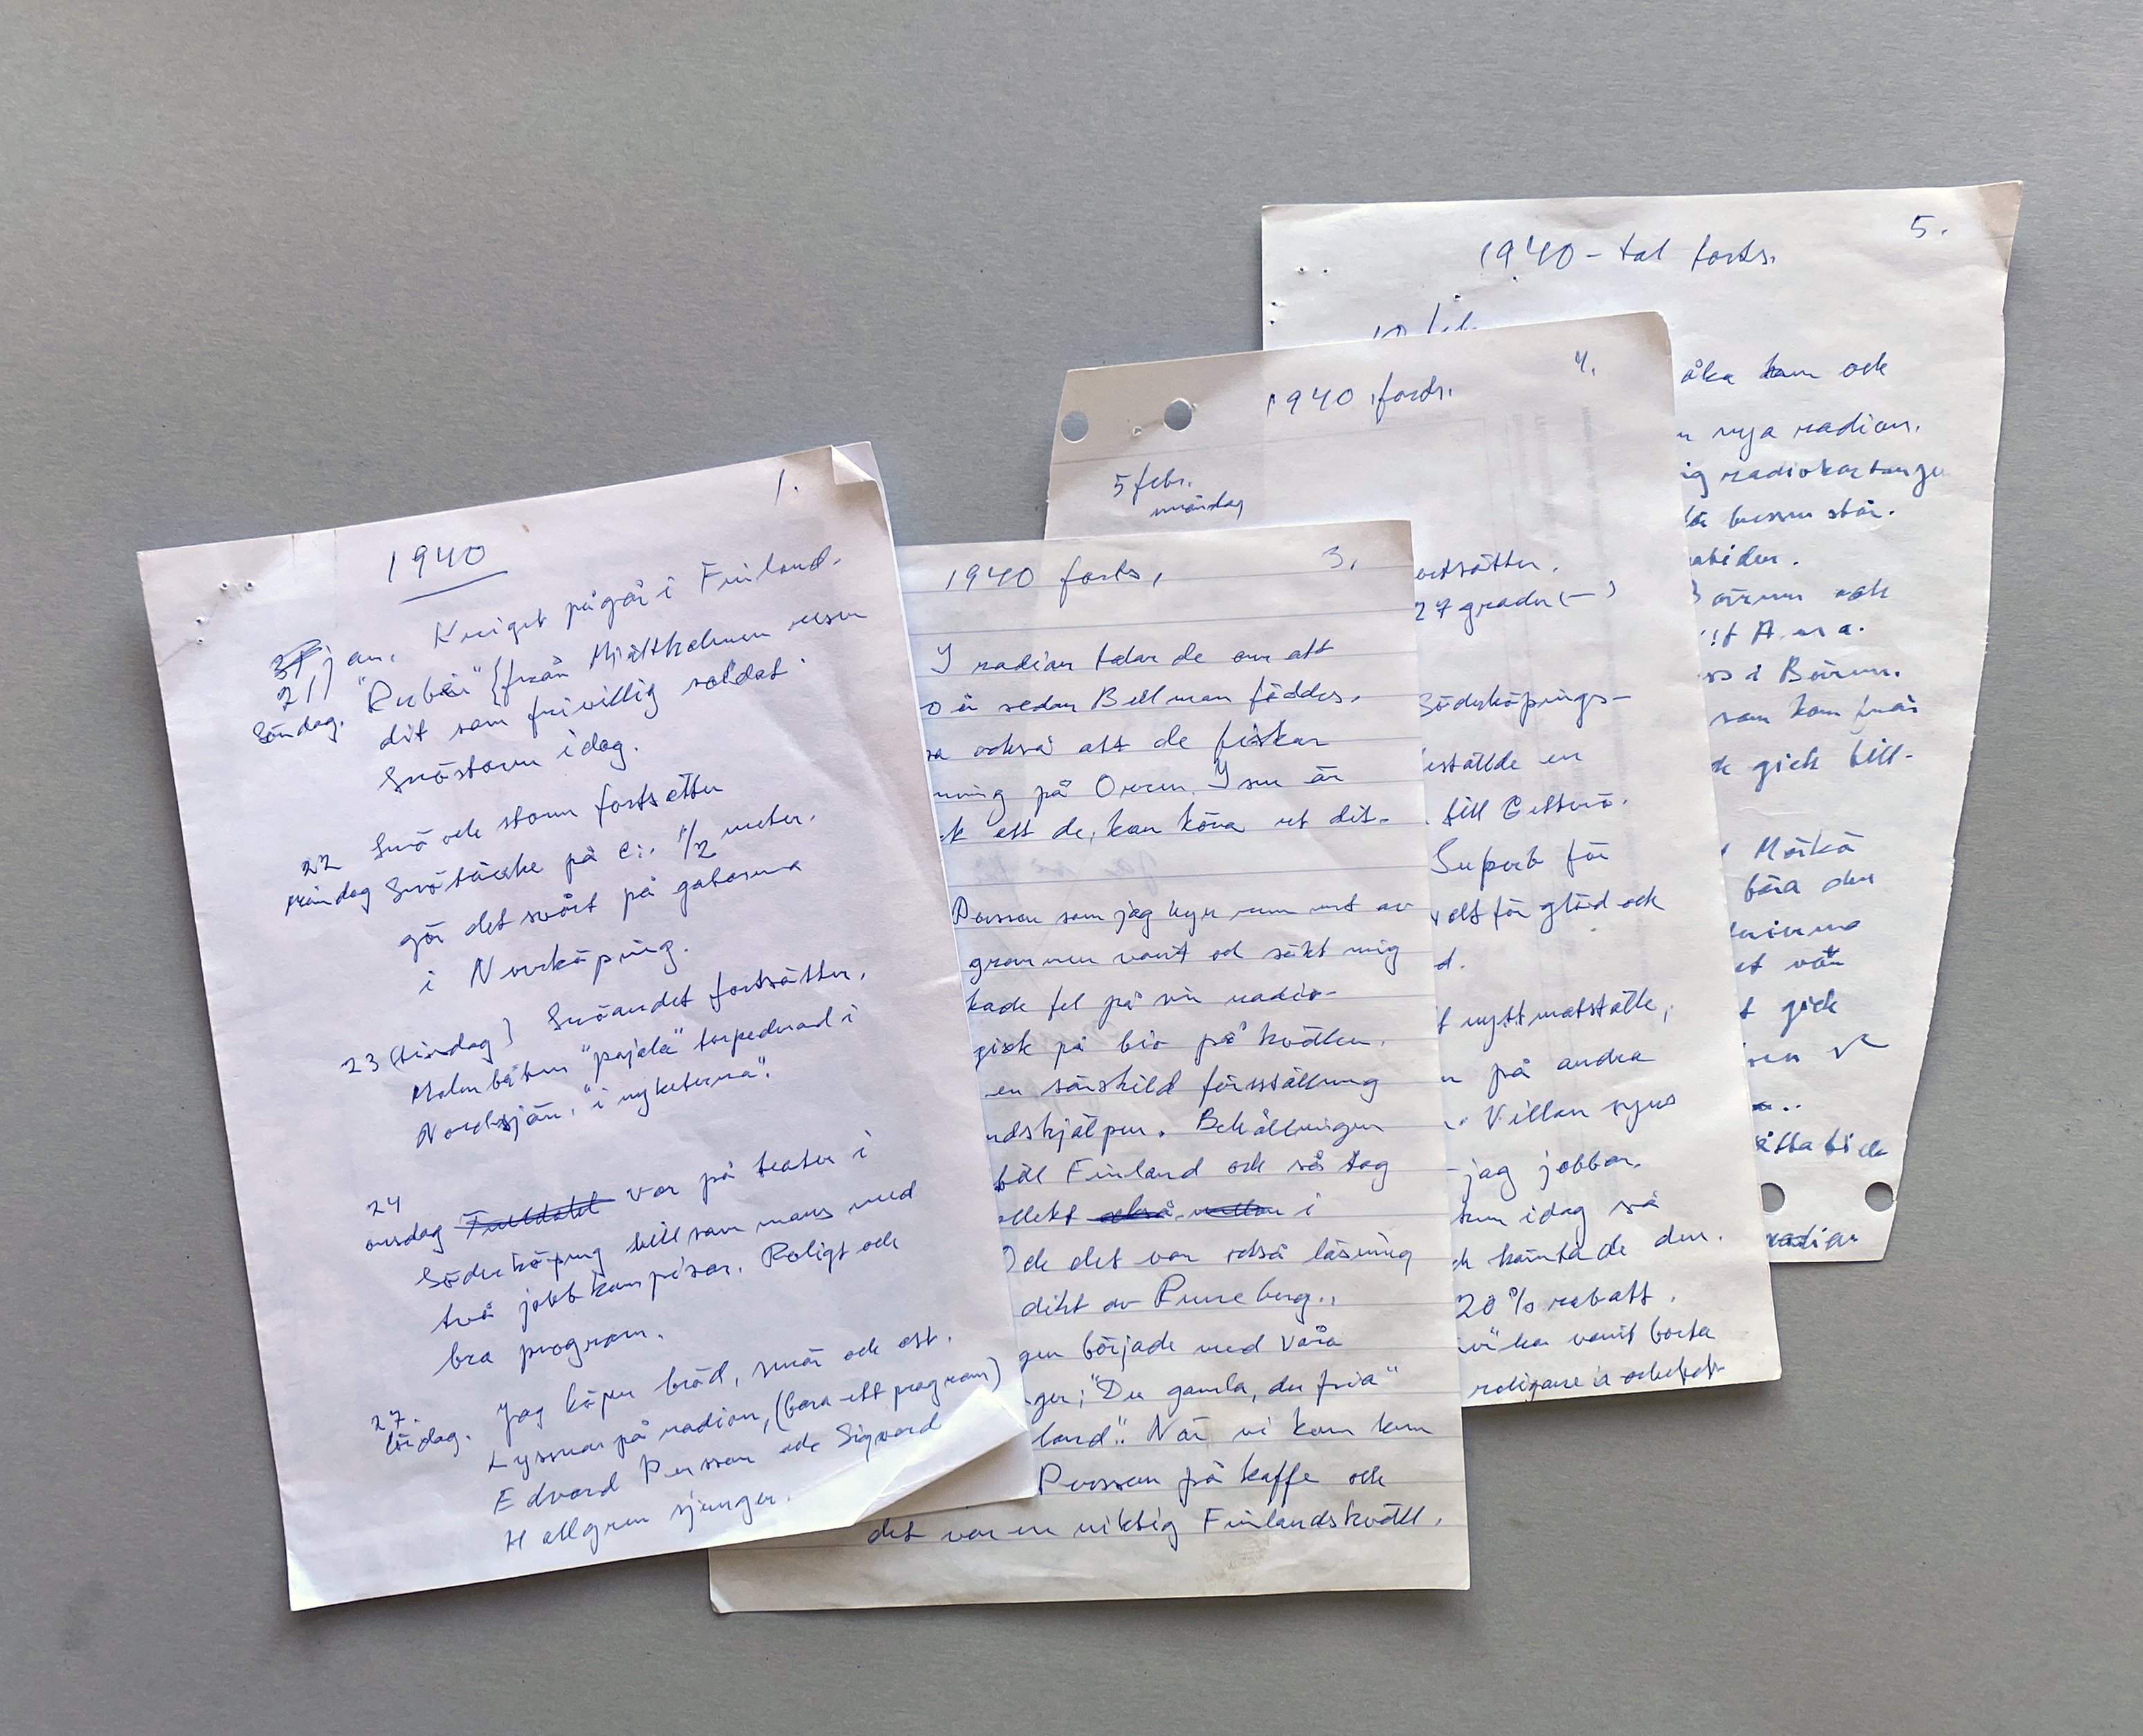 1.
1940
21 jan. Kriget pågår i Finland.
Söndag. "Rubén" (från Mjältholmen reser
dit som frivillig soldat.
Snöstorm idag.
22 Snö och storm fortsätter
måndag Snötäcke på c:. 1/2 meter.
gör det svårt på gatorna
i Norrköping.
23 (tisdag) Snöandet fortsätter.
Malmbåten "pajala" torpederad i
Nordsjön. "i nyheterna".
24
onsdag var på teater i
Söderköping tillsammans med
två jobbkompisar. Roligt och
bra program.
27.
lördag. Jag köper bröd, smör och ost.
Lyssnar på radion, (bara ett program)
Edvard Persson och Sigvard
Hallgren sjunger.
1940 forts, 3.
I radion talar de om att
o år sedan Bellman föddes.
sa också att de fiskar
ning på Ovren. Isen är
k att de kan köra ut dit.
Persson som jag hyr rum ut av
grannen varit och sökt mig
kade fel på sin radio-
gick på bio på kvällen.
en särskild föreställning
ndskjälpen. Behållningen
till Finland och så tag
ollekt också mellan i
Och det var också läsning
dikt av Runeberg.,
gen började med våra
ger; "Du gamla, du fria"
land". När vi kom hem
Persson på kaffe och
det var en riktig Finlandskväll.
1940 forts. 4.
5 febr.
måndag
ortsätter.
27 grader (-)
Söderköpings-
eställde en
till Getterö.
Superb för
olt för glöd och
d.
t nytt matställe,
n på andra
. Villan syns
- jag jobbar.
hem idag så
ch hämtade den.
20 % rabatt.
vika varit borta
roligare i arbetet
5.
1940-tal forts.
10 feb.
åka hem och
n nya radion.
ig radiokartongen
är bussen står.
atiden.
Börrum och
Anna.
ss i Börrum.
som kom från
k gick till-
Mörkö
bära den
et var
t gick
itta bi de
radion